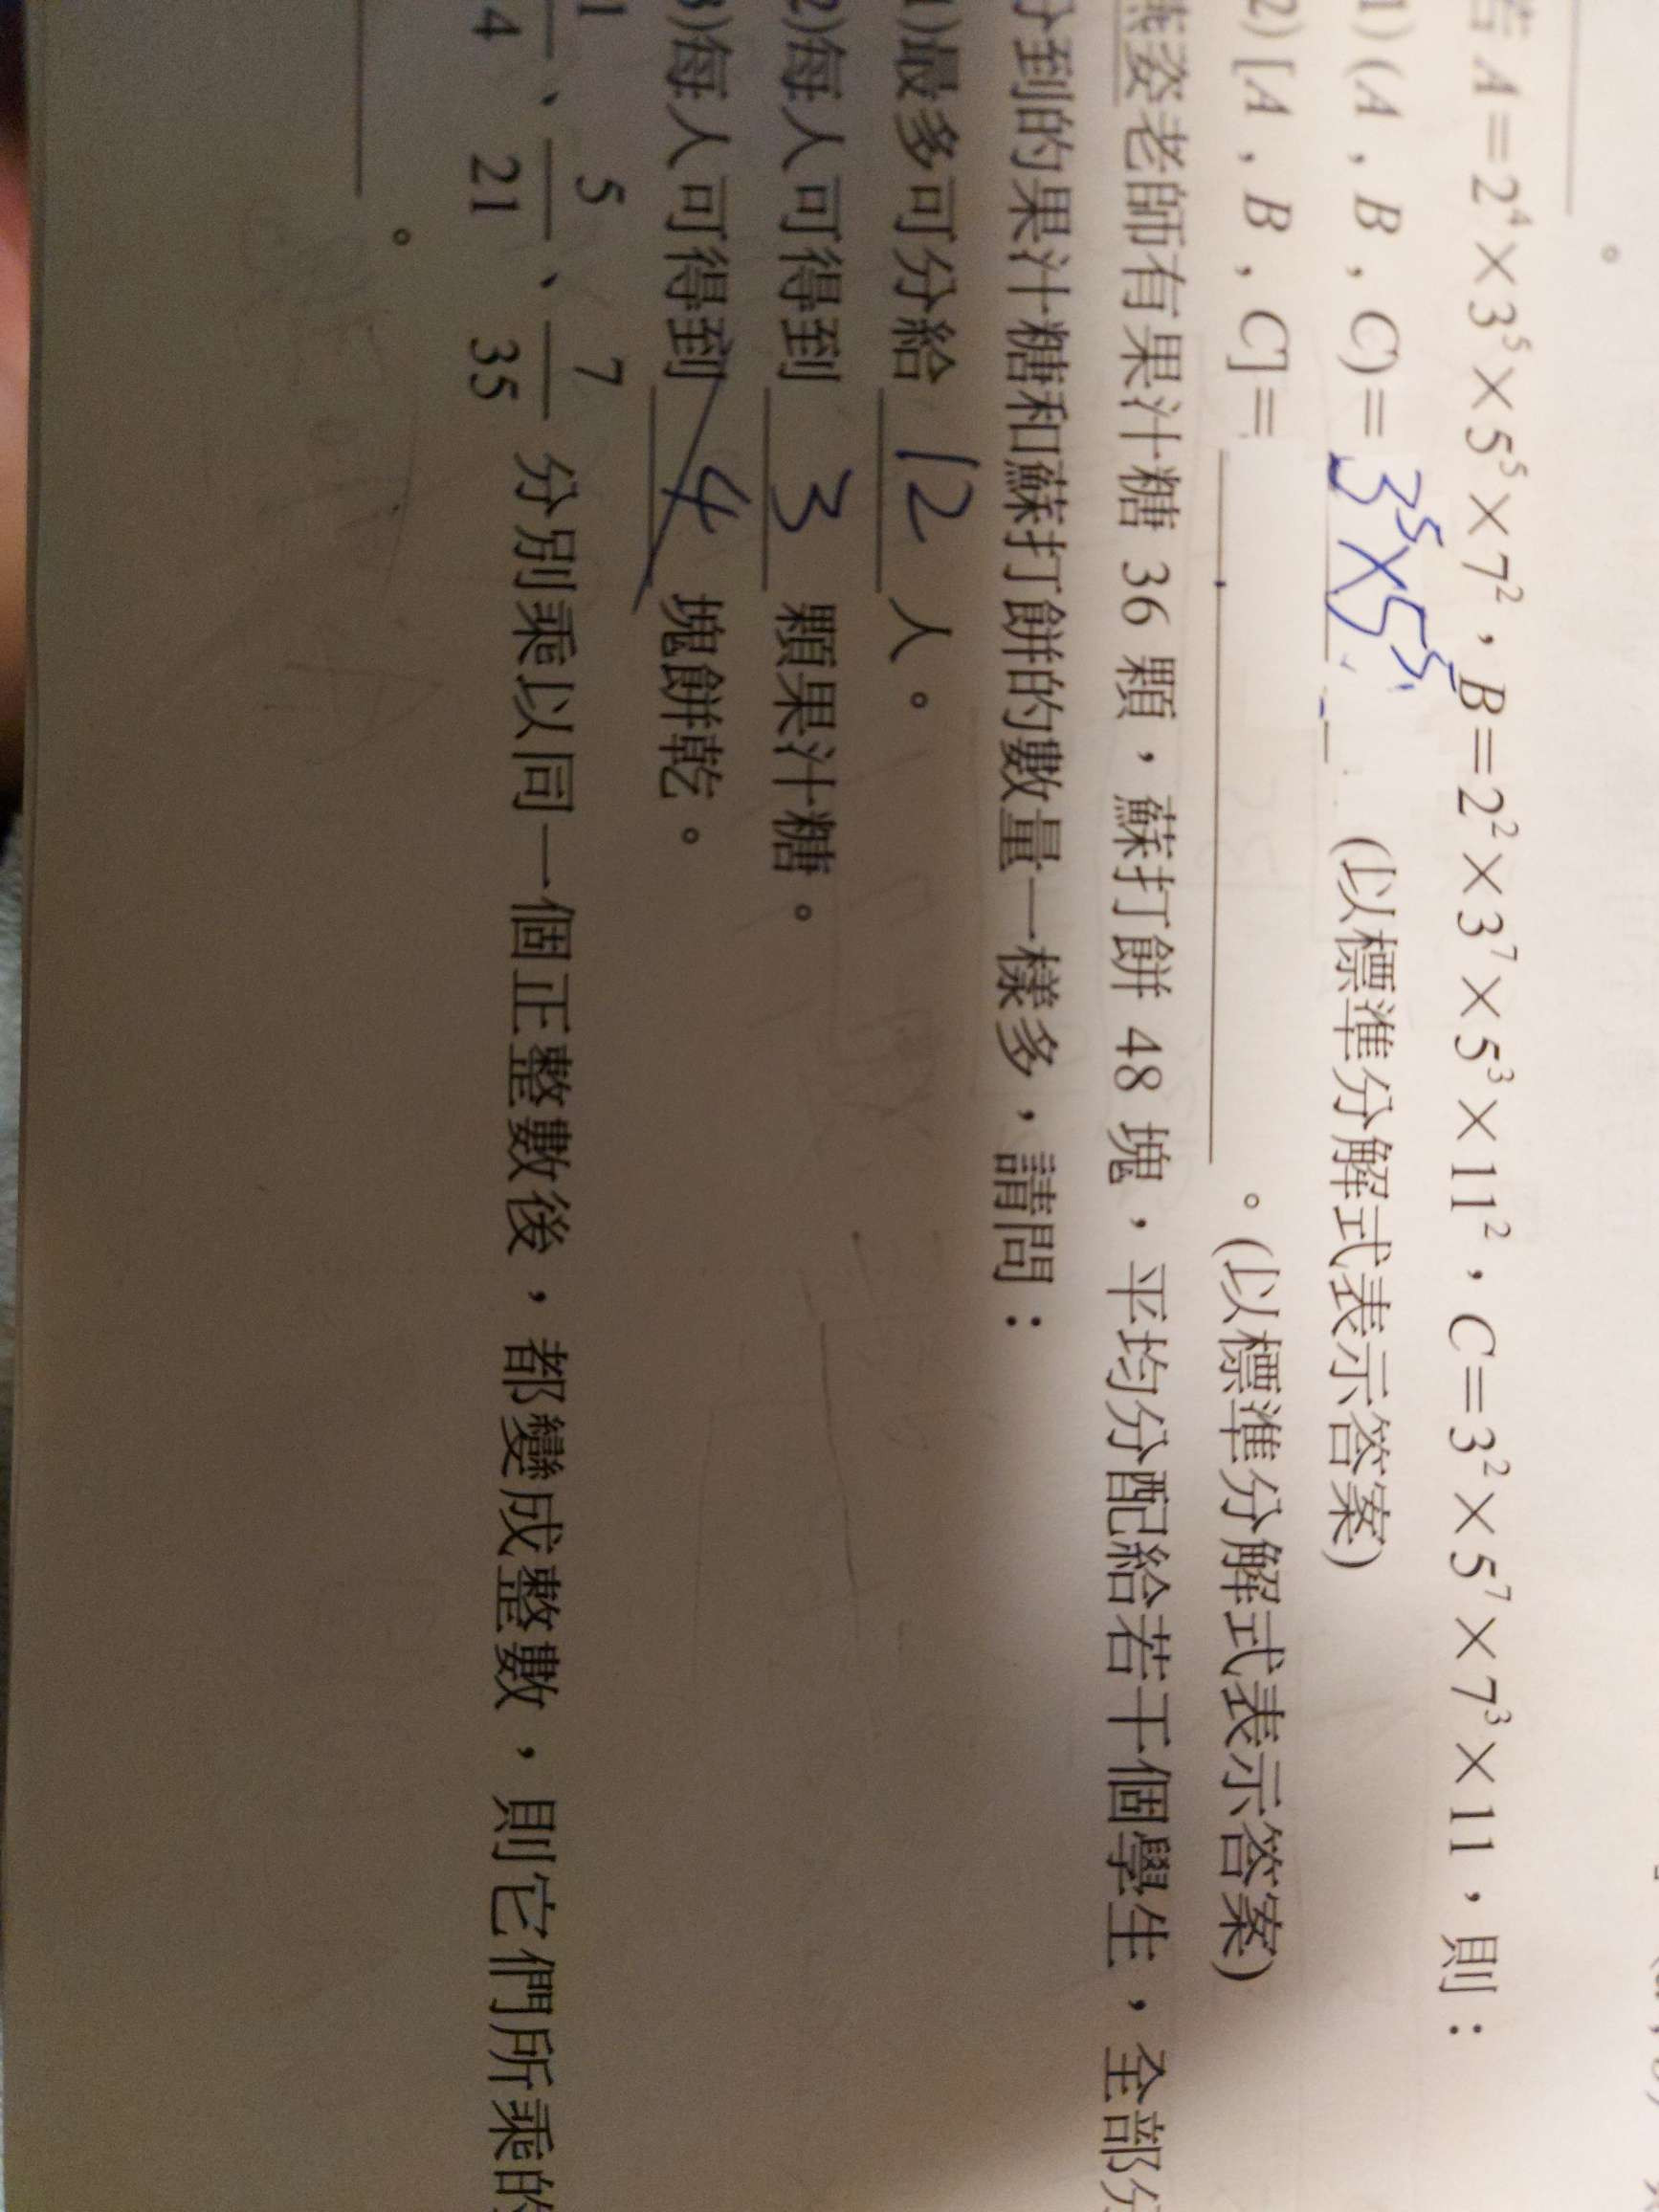 。
若 A=2⁴×3⁵×5⁵×7²，B=2²×3⁷×5³×11²，C=3²×5⁷×7³×11，則：
1) (A，B，C)= 3⁵×5⁵ (以標準分解式表示答案)
2) [A，B，C]= 。(以標準分解式表示答案)
燕姿老師有果汁糖 36 顆，蘇打餅 48 塊，平均分配給若干個學生，全部分
分到的果汁糖和蘇打餅的數量一樣多，請問：
1)最多可分給 12 人。
2)每人可得到 3 顆果汁糖。
3)每人可得到 4 塊餅乾。
1/4、5/21、7/35 分別乘以同一個正整數後，都變成整數，則它們所乘的
。